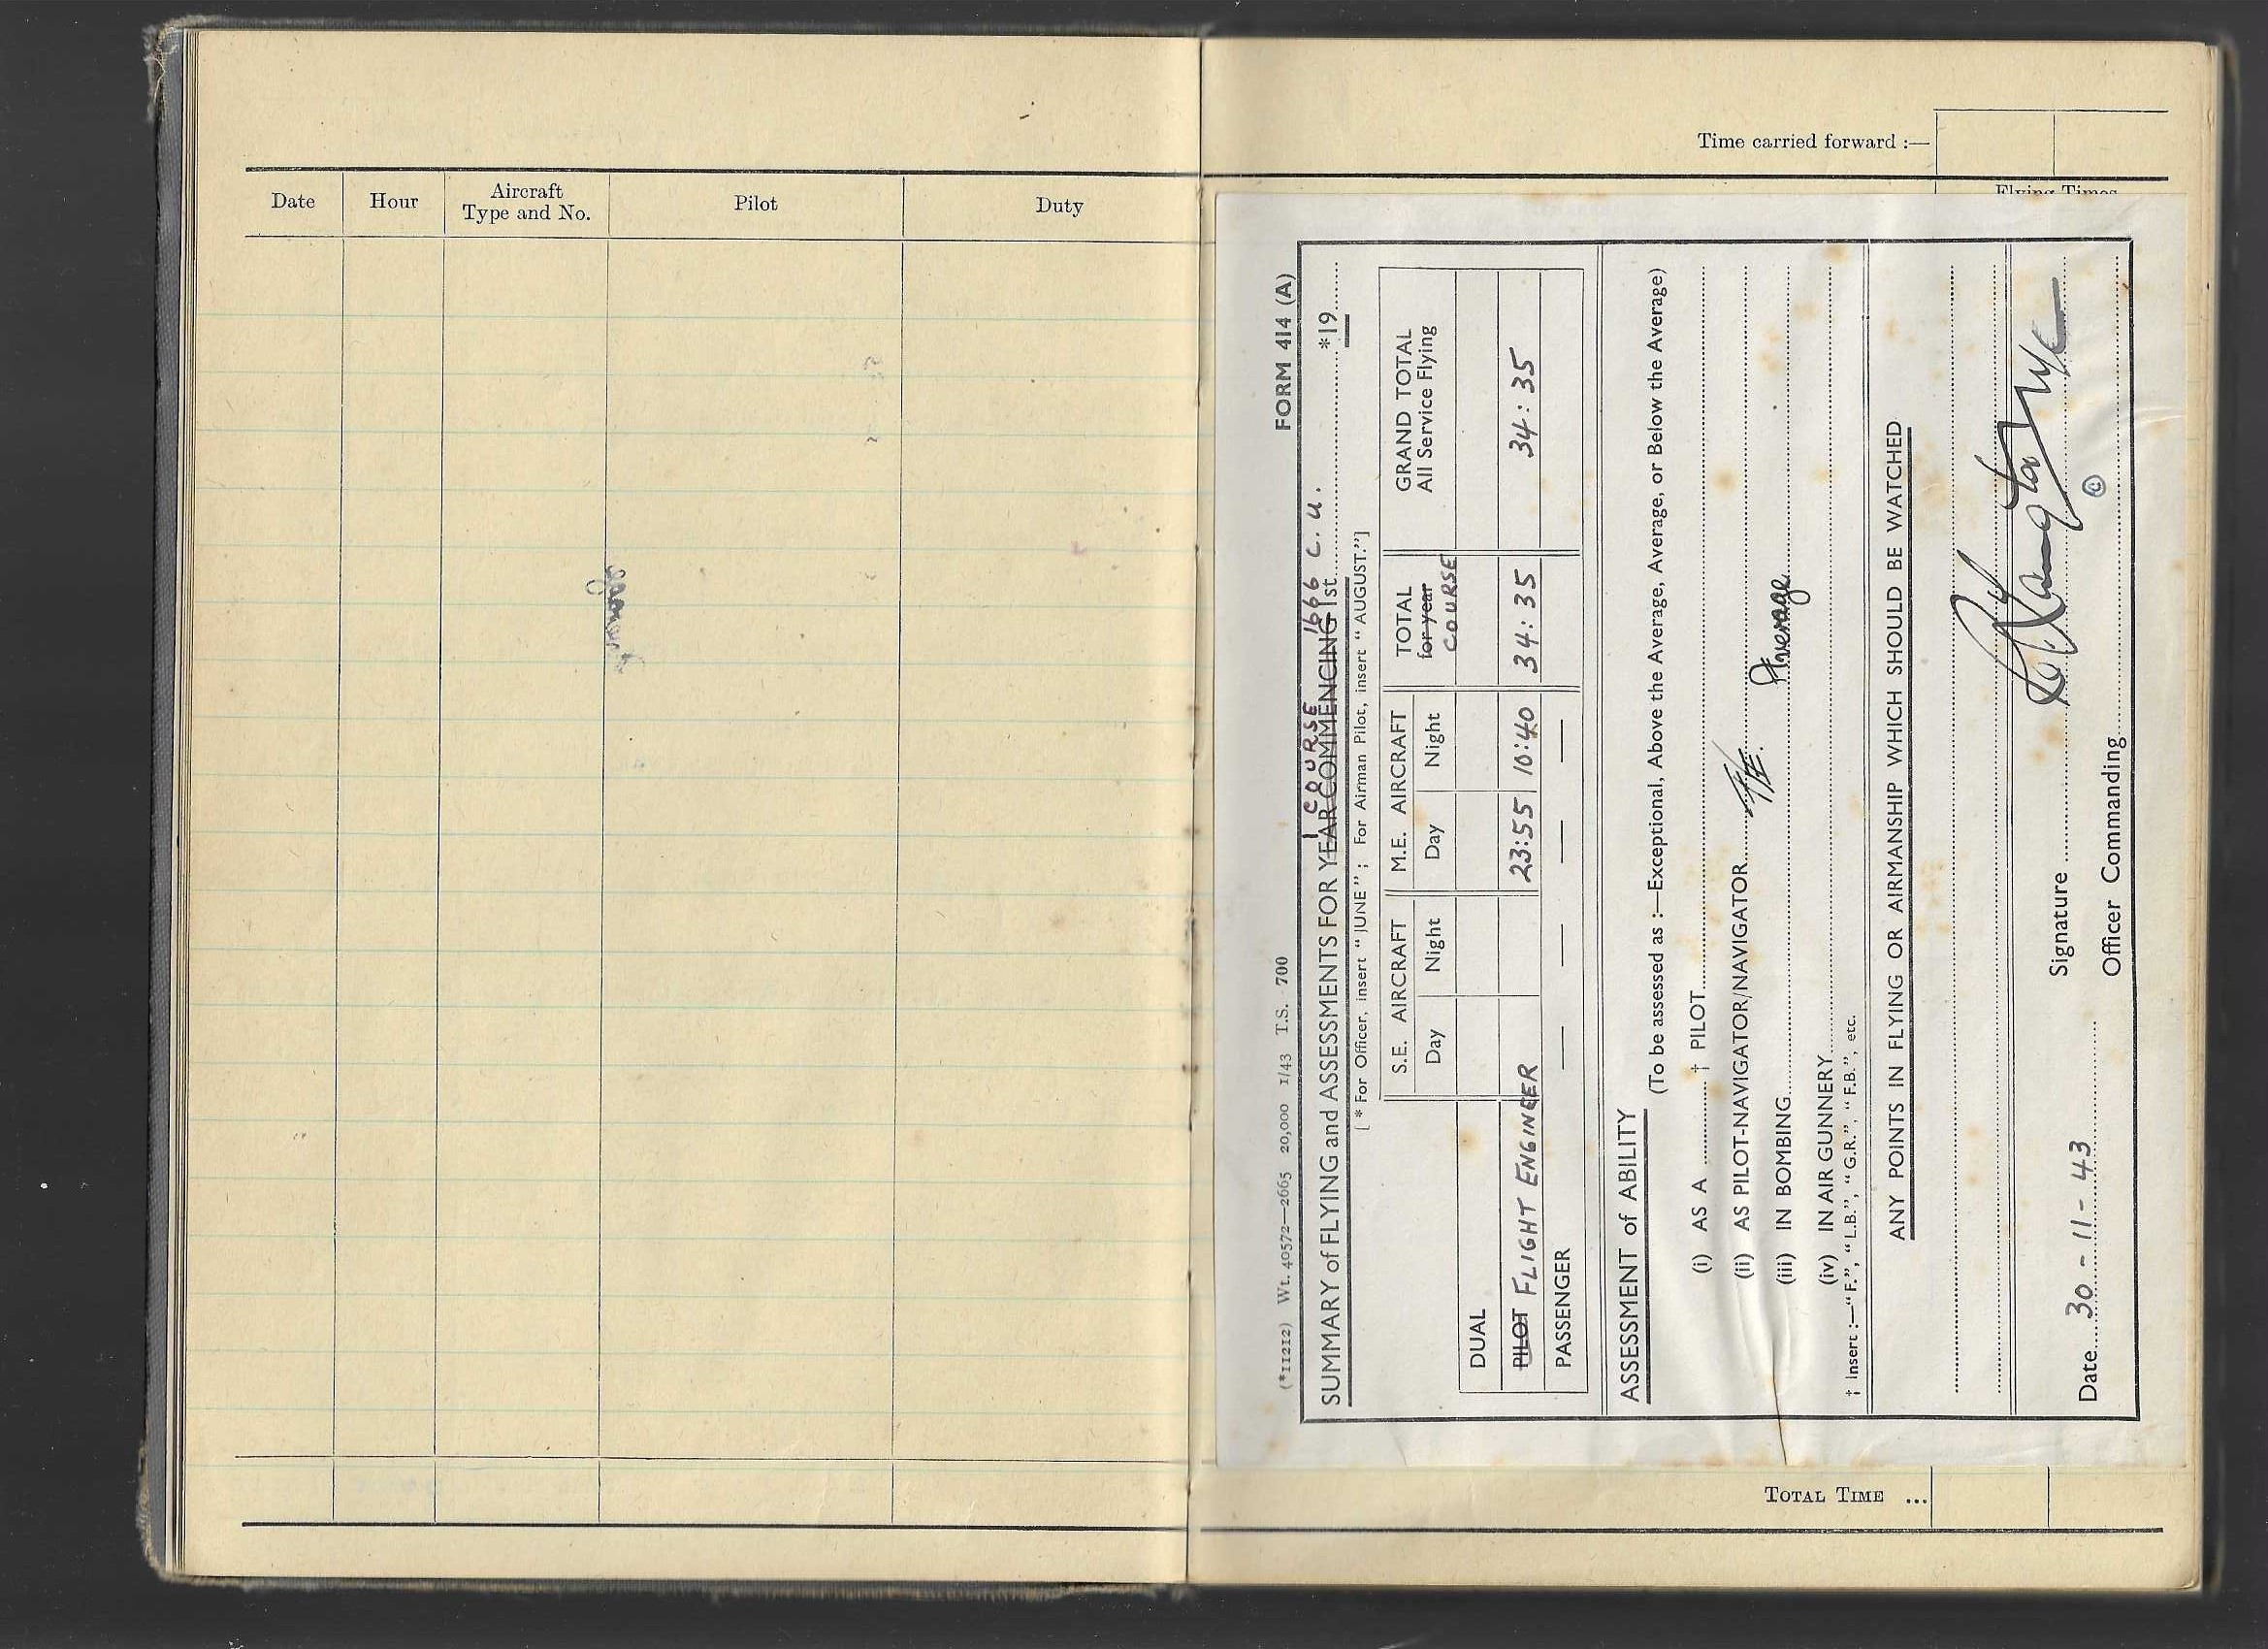 Date Hour Aircraft Type and No. Pilot Duty
Time carried forward :—
Flying Times
(*11212) Wt. 40572—2665 20,000 1/43 T.S. 700 FORM 414 (A)
COURSE 1666 C. U.
SUMMARY of FLYING and ASSESSMENTS FOR YEAR COMMENCING 1st *19
[* For Officer, insert "JUNE"; For Airman Pilot, insert "AUGUST."]
S.E. AIRCRAFT M.E. AIRCRAFT TOTAL for year COURSE GRAND TOTAL All Service Flying
Day Night Day Night
DUAL
PILOT FLIGHT ENGINEER 23:55 10:40 34:35 34:35
PASSENGER — — — —
ASSESSMENT of ABILITY
(To be assessed as :—Exceptional, Above the Average, Average, or Below the Average)
(i) AS A † PILOT
(ii) AS PILOT-NAVIGATOR/NAVIGATOR F/E. Average
(iii) IN BOMBING
(iv) IN AIR GUNNERY
† Insert :—"F.", "L.B.", "G.R.", "F.B.", etc.
ANY POINTS IN FLYING OR AIRMANSHIP WHICH SHOULD BE WATCHED
Signature
Date 30-11-43
Officer Commanding
©
TOTAL TIME ...